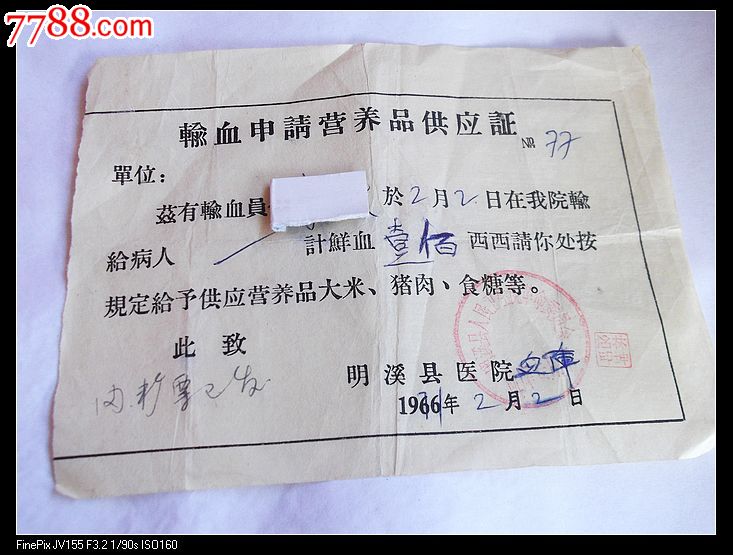 7788.com
輸血申請营养品供应証
№ 77
單位：
茲有輸血員 於2月2日在我院輸
給病人 計鮮血壹佰西西請你处按
規定給予供应营养品大米、猪肉、食糖等。
此致
明溪县医院血庫
肉.粉票已发
1966年2月2日
FinePix JV155 F3.2 1/90s ISO160